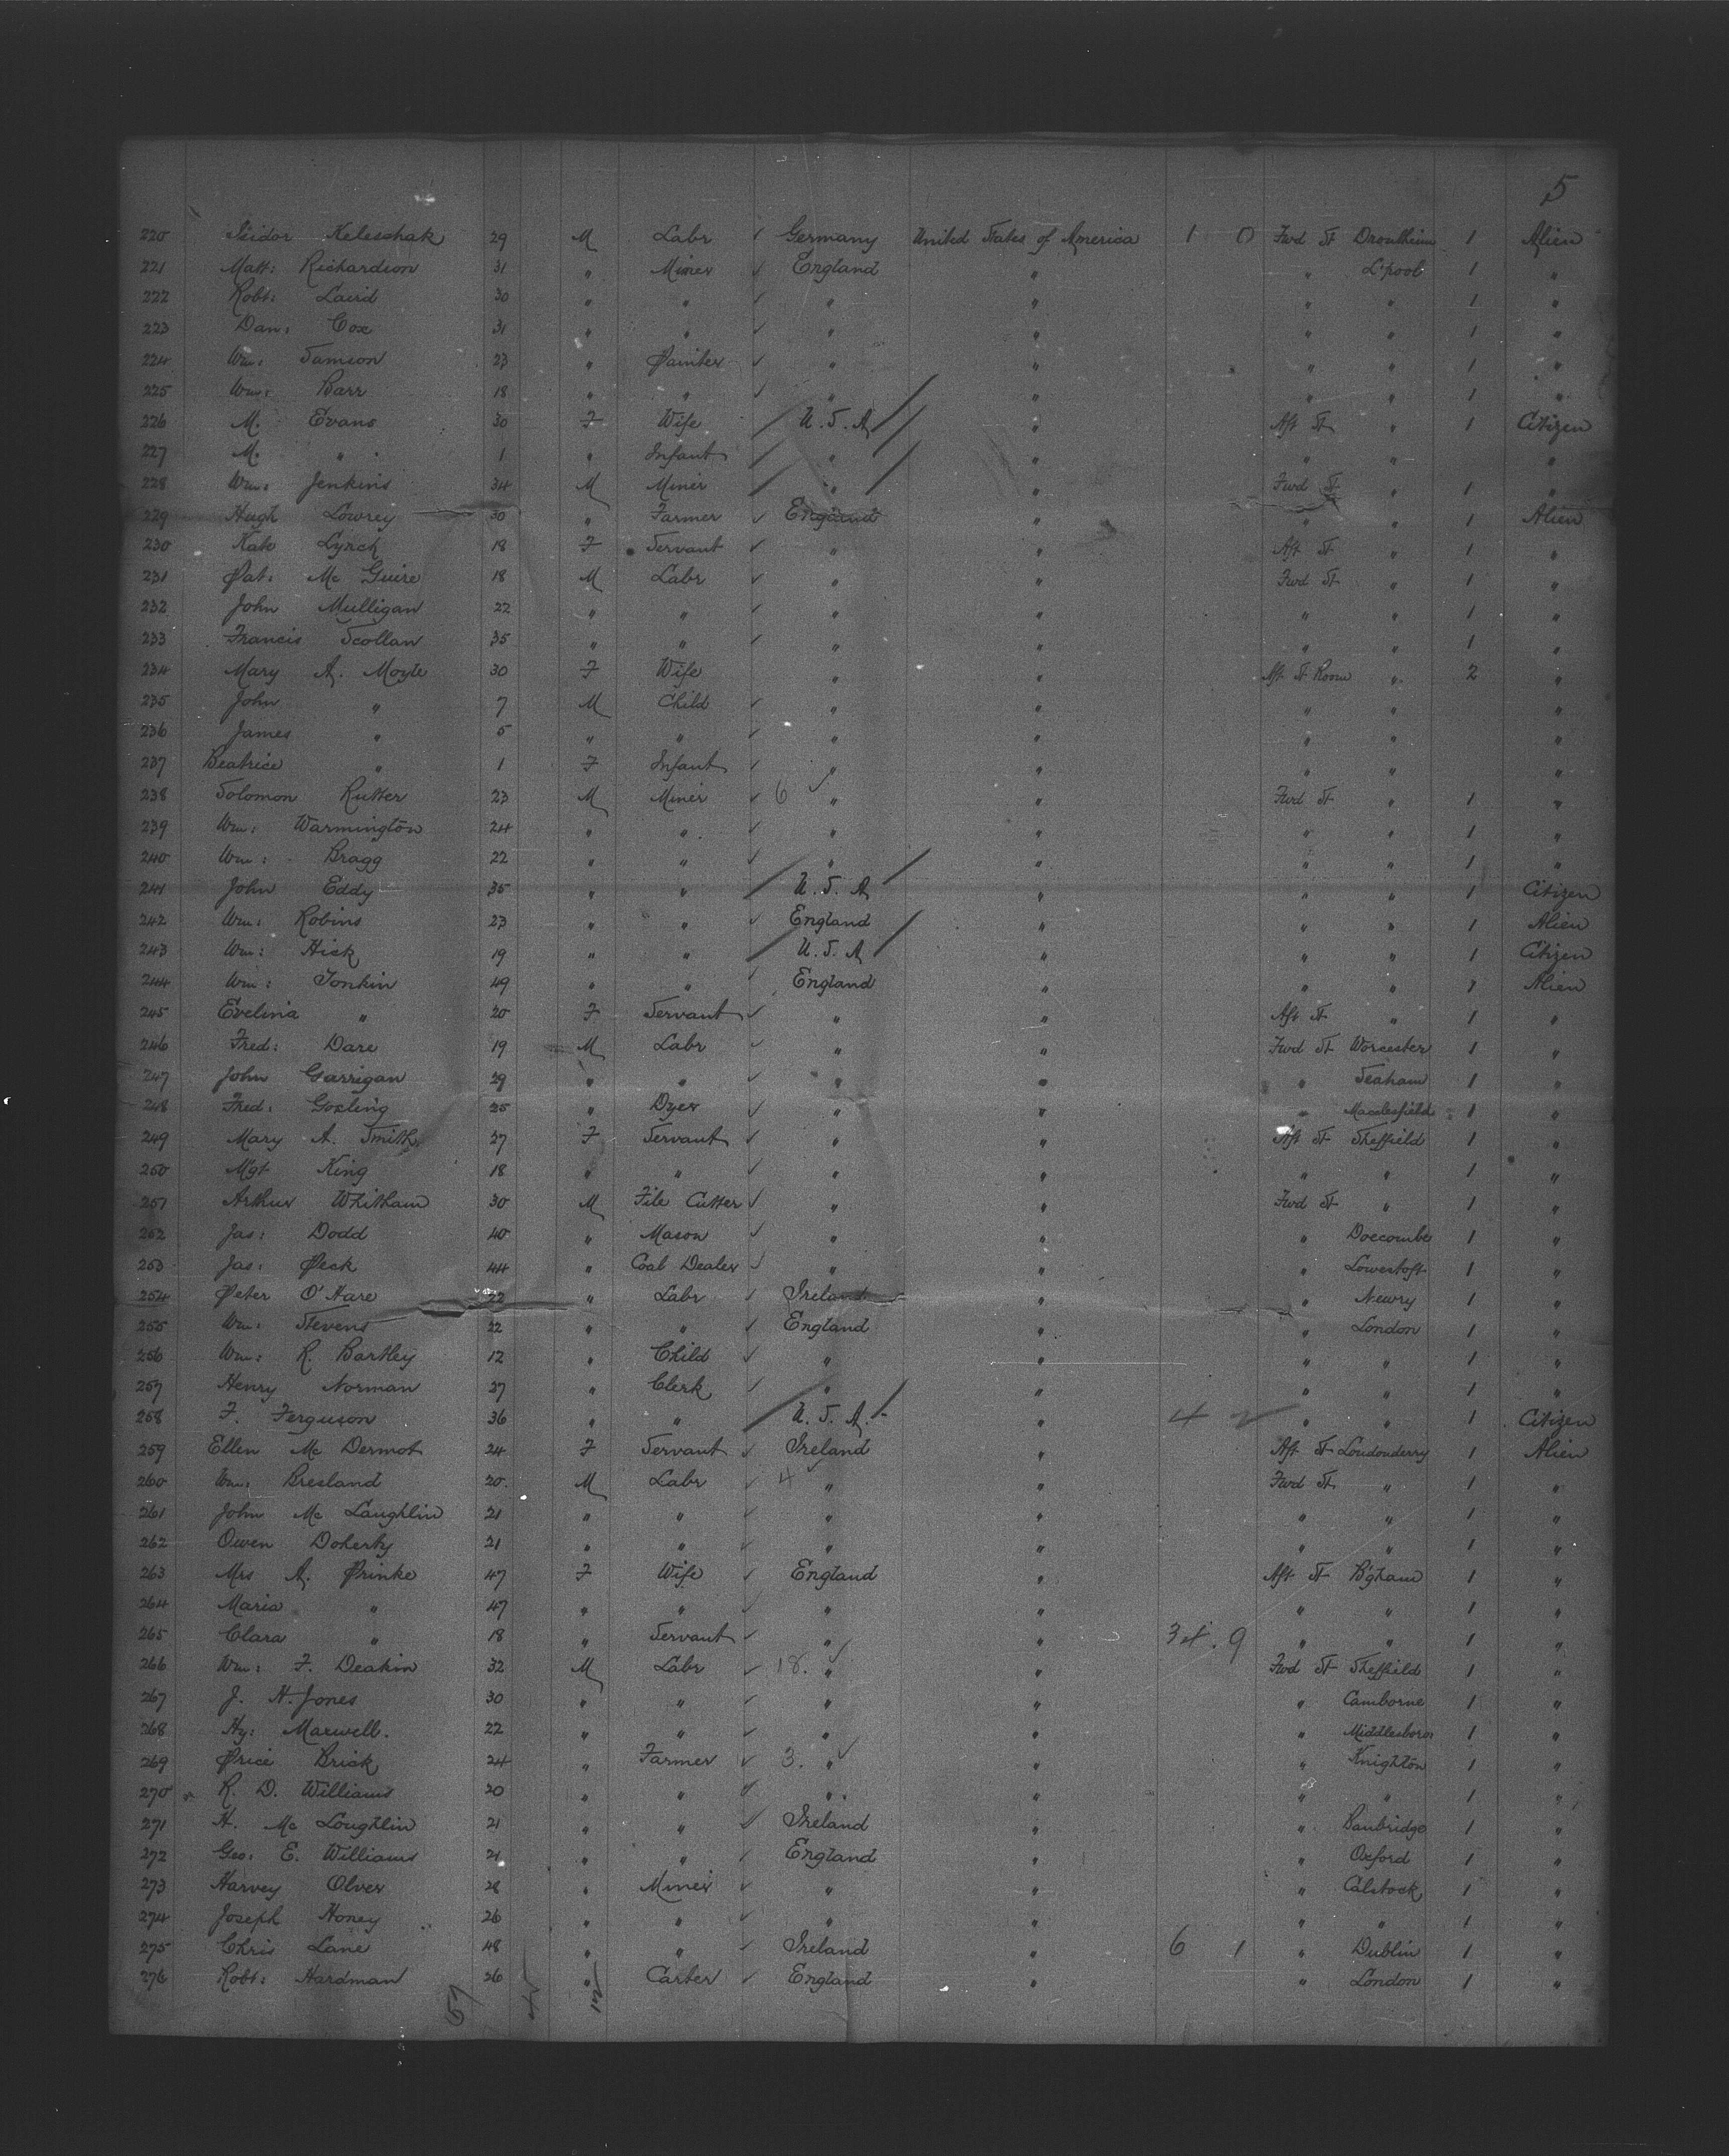 5
220 Isidor Keleschak 29 M Labr ✓ Germany United States of America 1 0 Fwd St Drontheim 1 Alien
221 Matt: Richardson 31 " Miner ✓ England " " L'pool 1 "
222 Robt: Laird 30 " " ✓ " " " " 1 "
223 Dan: Cox 31 " " ✓ " " " " 1 "
224 Wm: Samson 23 " Painter ✓ " " " " 1 "
225 Wm: Barr 18 " " ✓ " " " " 1 "
226 M. Evans 30 F Wife U.S.A " Aft St " 1 Citizen
227 M. " 1 " Infant " " " " "
228 Wm: Jenkins 34 M Miner " " Fwd St " 1 "
229 Hugh Lowrey 30 " Farmer ✓ England " " " 1 Alien
230 Kate Lynch 18 F Servant ✓ " " Aft St " 1 "
231 Pat: Mc Guire 18 M Labr ✓ " " Fwd St " 1 "
232 John Mulligan 22 " " ✓ " " " " 1 "
233 Francis Scollan 35 " " ✓ " " " " 1 "
234 Mary A. Moyle 30 F Wife " " Aft St Room " 2 "
235 John " 7 M Child ✓ " " " " "
236 James " 5 " " ✓ " " " " "
237 Beatrice " 1 F Infant ✓ " " " " "
238 Solomon Rutter 23 M Miner ✓ 6 ✓ " " Fwd St " 1 "
239 Wm: Warmington 24 " " ✓ " " " " 1 "
240 Wm: Bragg 22 " " ✓ " " " " 1 "
241 John Eddy 35 " " U.S.A " " " 1 Citizen
242 Wm: Robins 23 " " ✓ England " " " 1 Alien
243 Wm: Hick 19 " " U.S.A " " " 1 Citizen
244 Wm: Tonkin 49 " " ✓ England " " " 1 Alien
245 Evelina " 20 F Servant ✓ " " Aft St " 1 "
246 Fred: Dare 19 M Labr ✓ " " Fwd St Worcester 1 "
247 John Garrigan 29 " " ✓ " " " Seaham 1 "
248 Fred: Gosling 25 " Dyer ✓ " " " Macclesfield 1 "
249 Mary A. Smith 27 F Servant ✓ " " Aft St Sheffield 1 "
250 Mgt King 18 " " ✓ " " " " 1 "
251 Arthur Whitham 30 M File Cutter ✓ " " Fwd St " 1 "
252 Jas: Dodd 40 " Mason ✓ " " " Doccombe 1 "
253 Jas: Peck 44 " Coal Dealer ✓ " " " Lowestoft 1 "
254 Peter O'Hare 22 " Labr ✓ Ireland " " Newry 1 "
255 Wm: Stevens 22 " " ✓ England " " London 1 "
256 Wm: R. Bartley 12 " Child ✓ " " " " 1 "
257 Henry Norman 27 " Clerk ✓ " " " " 1 "
258 F. Ferguson 36 " " U.S.A. " 4 2 " " 1 Citizen
259 Ellen Mc Dermot 24 F Servant ✓ Ireland " Aft St Londonderry 1 Alien
260 Wm: Bresland 20 M Labr ✓ 4 ✓ " " Fwd St " 1 "
261 John Mc Laughlin 21 " " ✓ " " " " 1 "
262 Owen Doherty 21 " " ✓ " " " " 1 "
263 Mrs A. Prinke 47 F Wife ✓ England " Aft St B'gham 1 "
264 Maria " 47 " " ✓ " " " " 1 "
265 Clara " 18 " Servant ✓ " " 9 " " 1 "
266 Wm: F. Deakin 32 M Labr ✓ 18. ✓ " " Fwd St Sheffield 1 "
267 J. H. Jones 30 " " ✓ " " " Camborne 1 "
268 Hy: Maxwell. 22 " " ✓ " " " Middlesboro 1 "
269 Price Brick 24 " Farmer ✓ 3. ✓ " " " Knighton 1 "
270 R. D. Williams 20 " " ✓ " " " " 1 "
271 H. Mc Loughlin 21 " " ✓ Ireland " " Banbridge 1 "
272 Geo: E. Williams 21 " " ✓ England " " Oxford 1 "
273 Harvey Olver 28 " Miner ✓ " " " Calstock 1 "
274 Joseph Honey 26 " " ✓ " " " " 1 "
275 Chris Lane 48 " " ✓ Ireland " 6 1 " Dublin 1 "
276 Robt: Hardman 26 " Carter ✓ England " " London 1 "
12